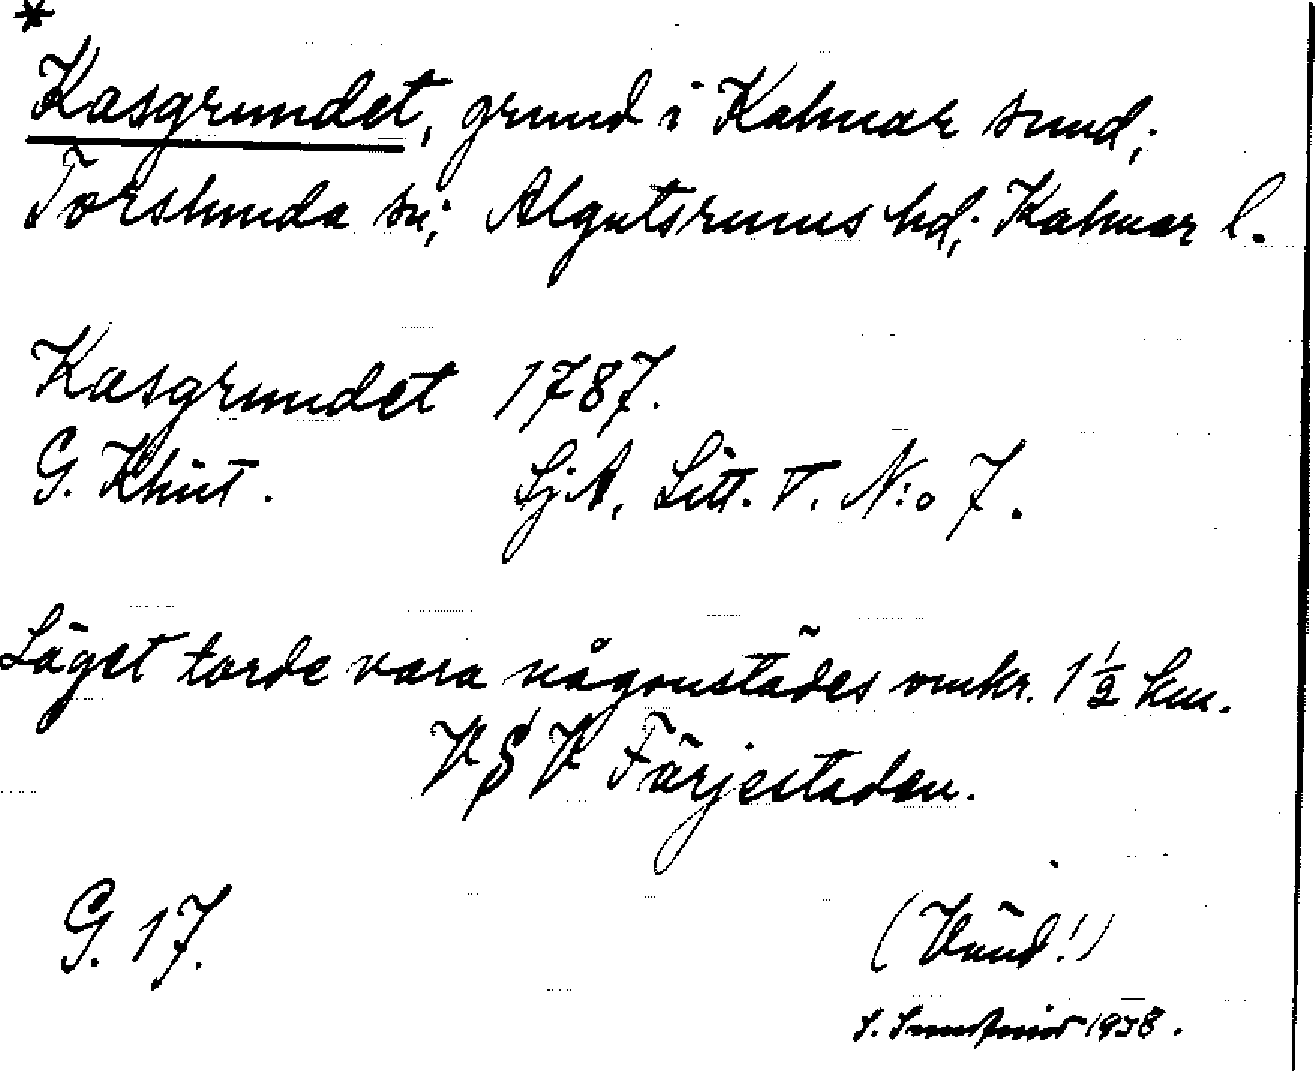 *
Kasgrundet, grund i Kalmar sund;
Torslunda sn; Algutsrums hd; Kalmar l.
Kasgrundet 1787.
G. Klint. SjA, Litt. V. N:o 7.
Läget torde vara någonstädes omkr. 1 1/2 km.
V § V Färjestaden.
G. 17.
(Vänd!)
1938.